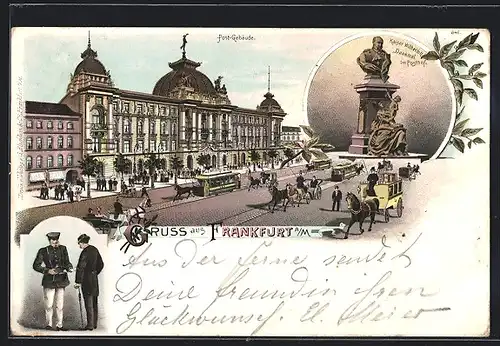 Post-Gebäude.
Kaiser Wilhelm-
Denkmal
im Posthof.
GRUSS aus FRANKFURT A/M
Aus der Ferne sendet
Deine Freundin ihren
Glückwunsch. El. Meier